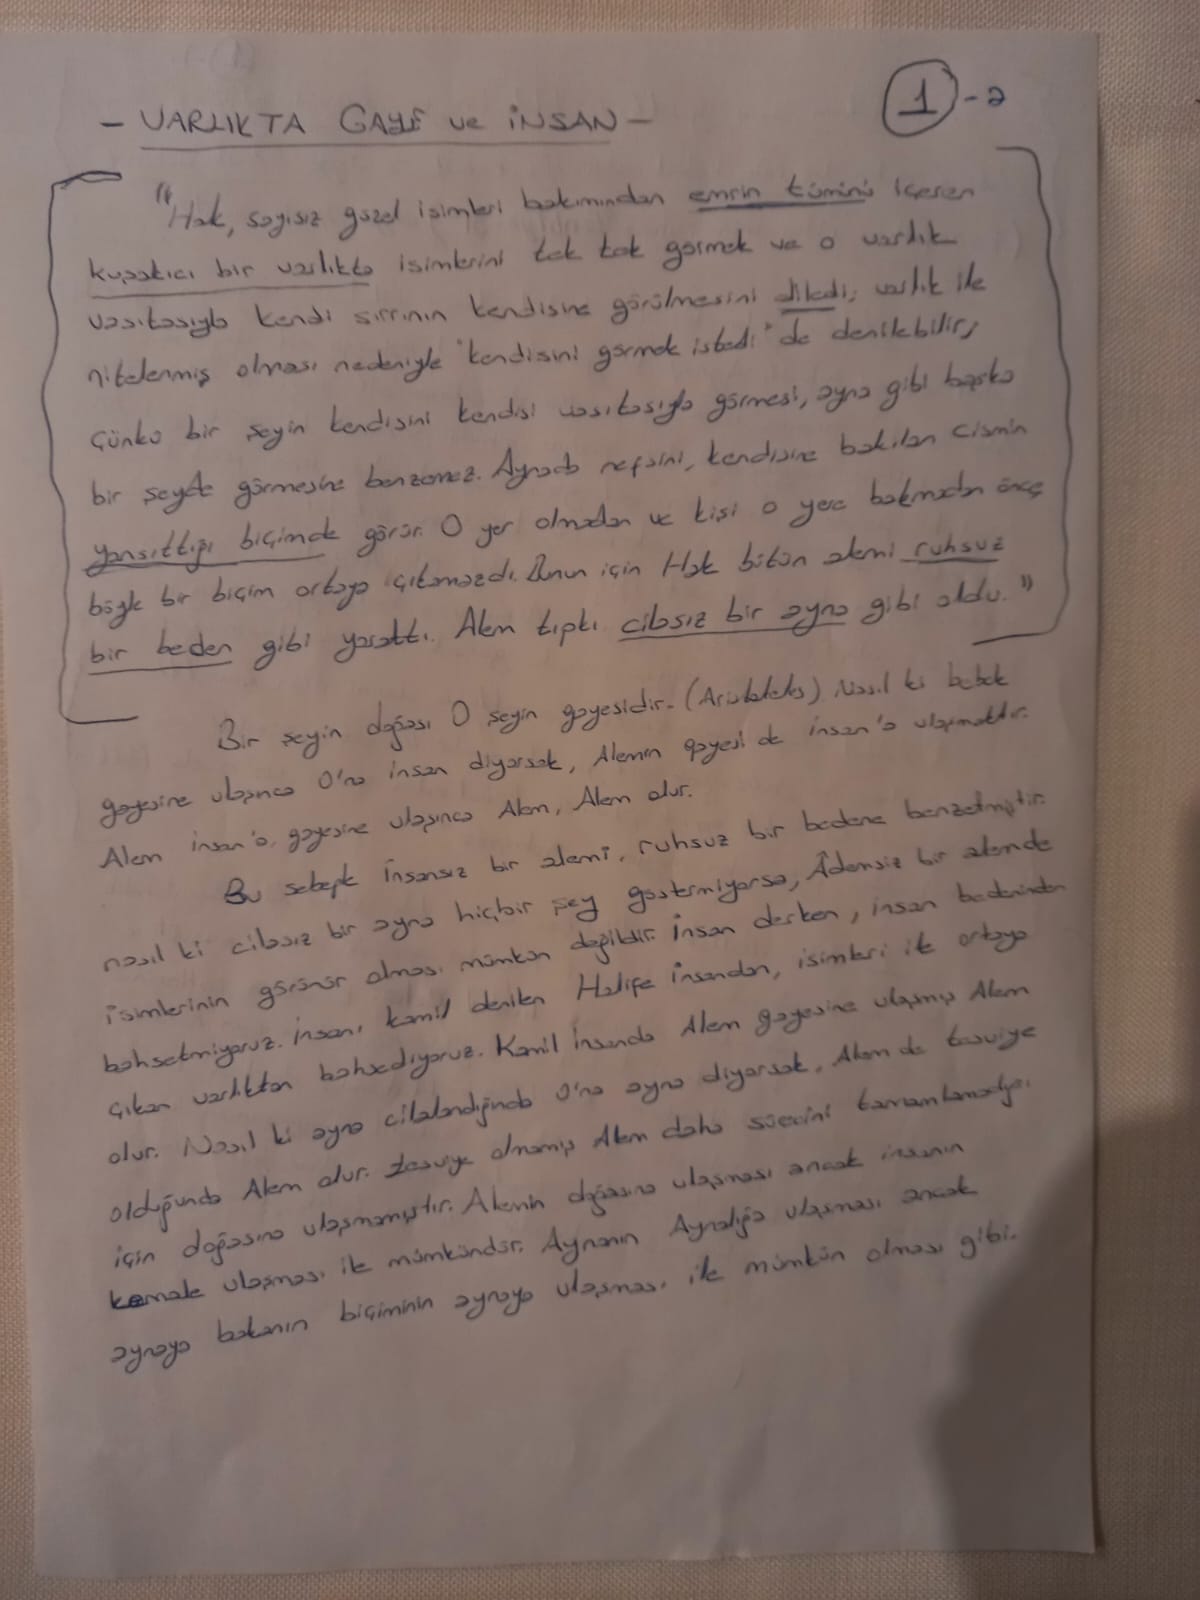 1 - a
- VARLIKTA GAYE ve İNSAN -
"Hak, sayısız güzel isimleri bakımından emrin tümünü içeren
kuşatıcı bir varlıkta isimlerini tek tek görmek ve o varlık
vasıtasıyla kendi sırrının kendisine görülmesini diledi; varlık ile
nitelenmiş olması nedeniyle "kendisini görmek istedi" de denilebilir;
Çünkü bir şeyin kendisini kendisi vasıtasıyla görmesi, ayna gibi başka
bir şeyde görmesine benzemez. Aynada nefsini, kendisine bakılan cismin
yansıttığı biçimde görür. O yer olmadan ve kişi o yere bakmadan önce
böyle bir biçim ortaya çıkamazdı. Bunun için Hak bütün alemi ruhsuz
bir beden gibi yarattı. Alem tıpkı cilasız bir ayna gibi oldu."
Bir şeyin doğası O şeyin gayesidir. (Aristoteles) Nasıl ki bebek
gayesine ulaşınca O'na insan diyorsak, Alemin gayesi de insan'a ulaşmaktır.
Alem insan'a, gayesine ulaşınca Alem, Alem olur.
Bu sebeple İnsansız bir alemi, ruhsuz bir bedene benzetmiştir.
nasıl ki cilasız bir ayna hiçbir şey göstermiyorsa, Âdemsiz bir alemde
isimlerinin görünür olması mümkün değildir. İnsan derken, insan bedeninden
bahsetmiyoruz. İnsanı kamil denilen Halife İnsandan, isimleri ile ortaya
çıkan varlıktan bahsediyoruz. Kamil İnsanda Alem gayesine ulaşmış Alem
olur. Nasıl ki ayna cilalandığında O'na ayna diyorsak, Alem de tesviye
olduğunda Alem olur. tesviye olmamış Alem daha sürecini tamamlamadığı
için doğasına ulaşmamıştır. Alemin doğasına ulaşması ancak insanın
kemale ulaşması ile mümkündür. Aynanın Aynalığa ulaşması ancak
aynaya bakanın biçiminin aynaya ulaşması ile mümkün olması gibi.